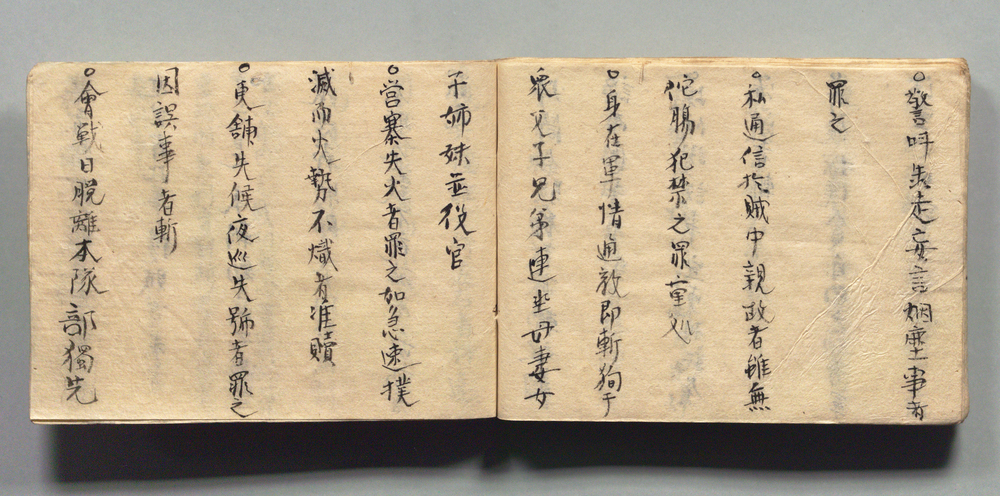 ○驚呼失走妄言烟塵事者
罪之
○私通信扵賊中親故者雖無
佗腸犯禁之罪重処
○身在軍情通敵即斬狥于
衆父子兄弟連坐母妻女
子姉妹並役官
○営寨失火者罪之如急速撲
滅而火勢不熾者准贖
○更舗失候夜巡失號者罪之
因誤事者斬
○會戦日脱離本隊部獨先